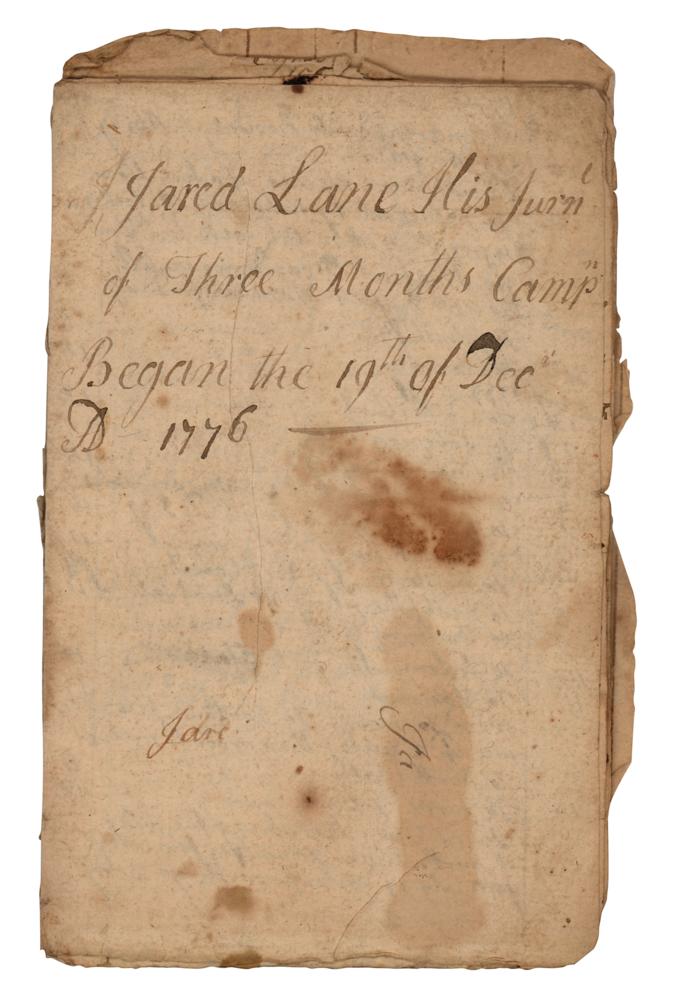 Jared Lane His Jurnˡ
of Three Months Campⁿ
Began the 19th of Decr
AD 1776
Jare
Ja